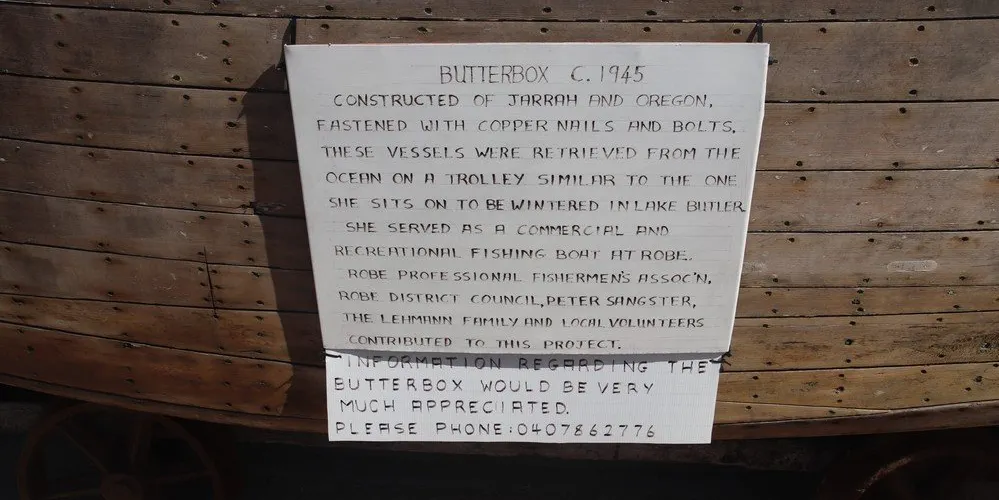 BUTTERBOX C. 1945
CONSTRUCTED OF JARRAH AND OREGON,
FASTENED WITH COPPER NAILS AND BOLTS.
THESE VESSELS WERE RETRIEVED FROM THE
OCEAN ON A TROLLEY SIMILAR TO THE ONE
SHE SITS ON TO BE WINTERED IN LAKE BUTLER
SHE SERVED AS A COMMERCIAL AND
RECREATIONAL FISHING BOAT AT ROBE.
ROBE PROFESSIONAL FISHERMEN'S ASSOC'N,
ROBE DISTRICT COUNCIL, PETER SANGSTER,
THE LEHMANN FAMILY AND LOCAL VOLUNTEERS
CONTRIBUTED TO THIS PROJECT.
INFORMATION REGARDING THE
BUTTERBOX WOULD BE VERY
MUCH APPRECIATED.
PLEASE PHONE:0407862776